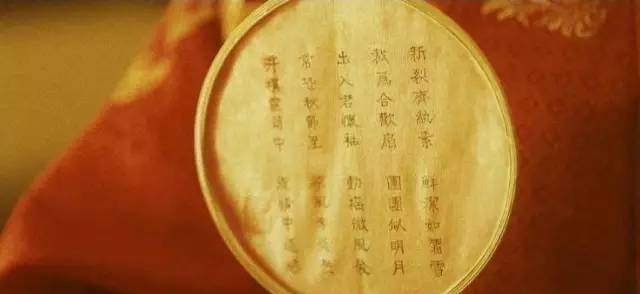 新裂齊紈素
鮮潔如霜雪
裁為合歡扇
團團似明月
出入君懷袖
動搖微風發
常恐秋節至
涼風
棄捐篋笥中
情中道